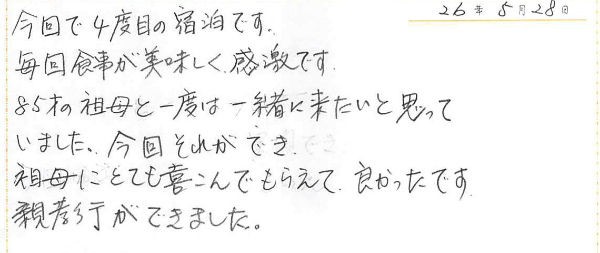 26年5月28日
今回で4度目の宿泊です.
毎回食事が美味しく感激です.
85才の祖母と一度は一緒に来たいと思って
いました。今回それができ.
祖母にとても喜こんでもらえて.良かったです
親孝行ができました。